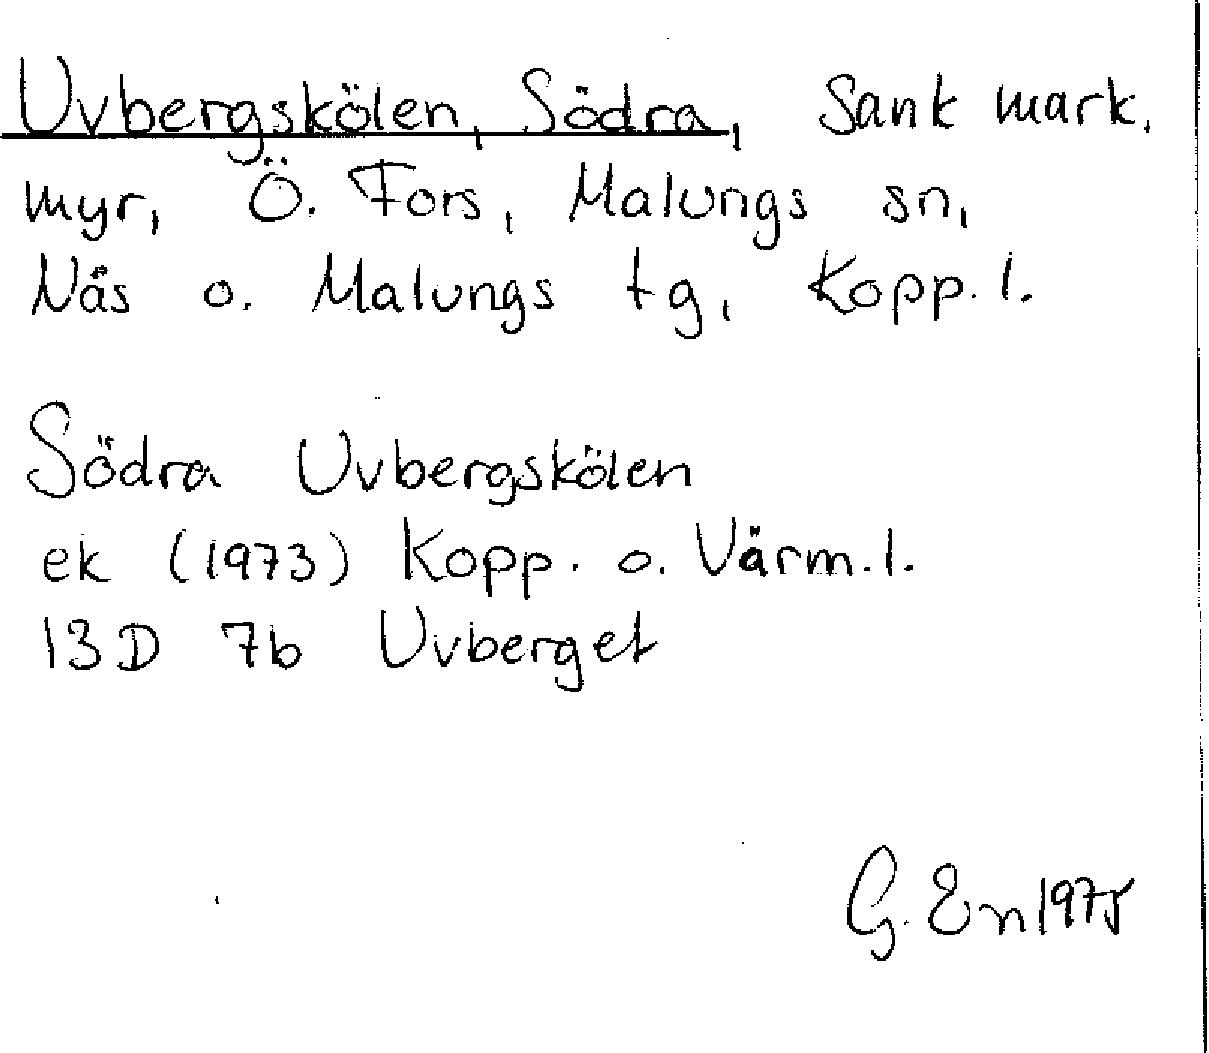 Uvbergskölen, Södra, Sank mark,
myr, Ö. Fors, Malungs sn,
Näs o. Malungs tg, Kopp. l.
Södra Uvbergskölen
ek (1973) Kopp. o. Värm. l.
13D 7b Uvberget
G. En 1975